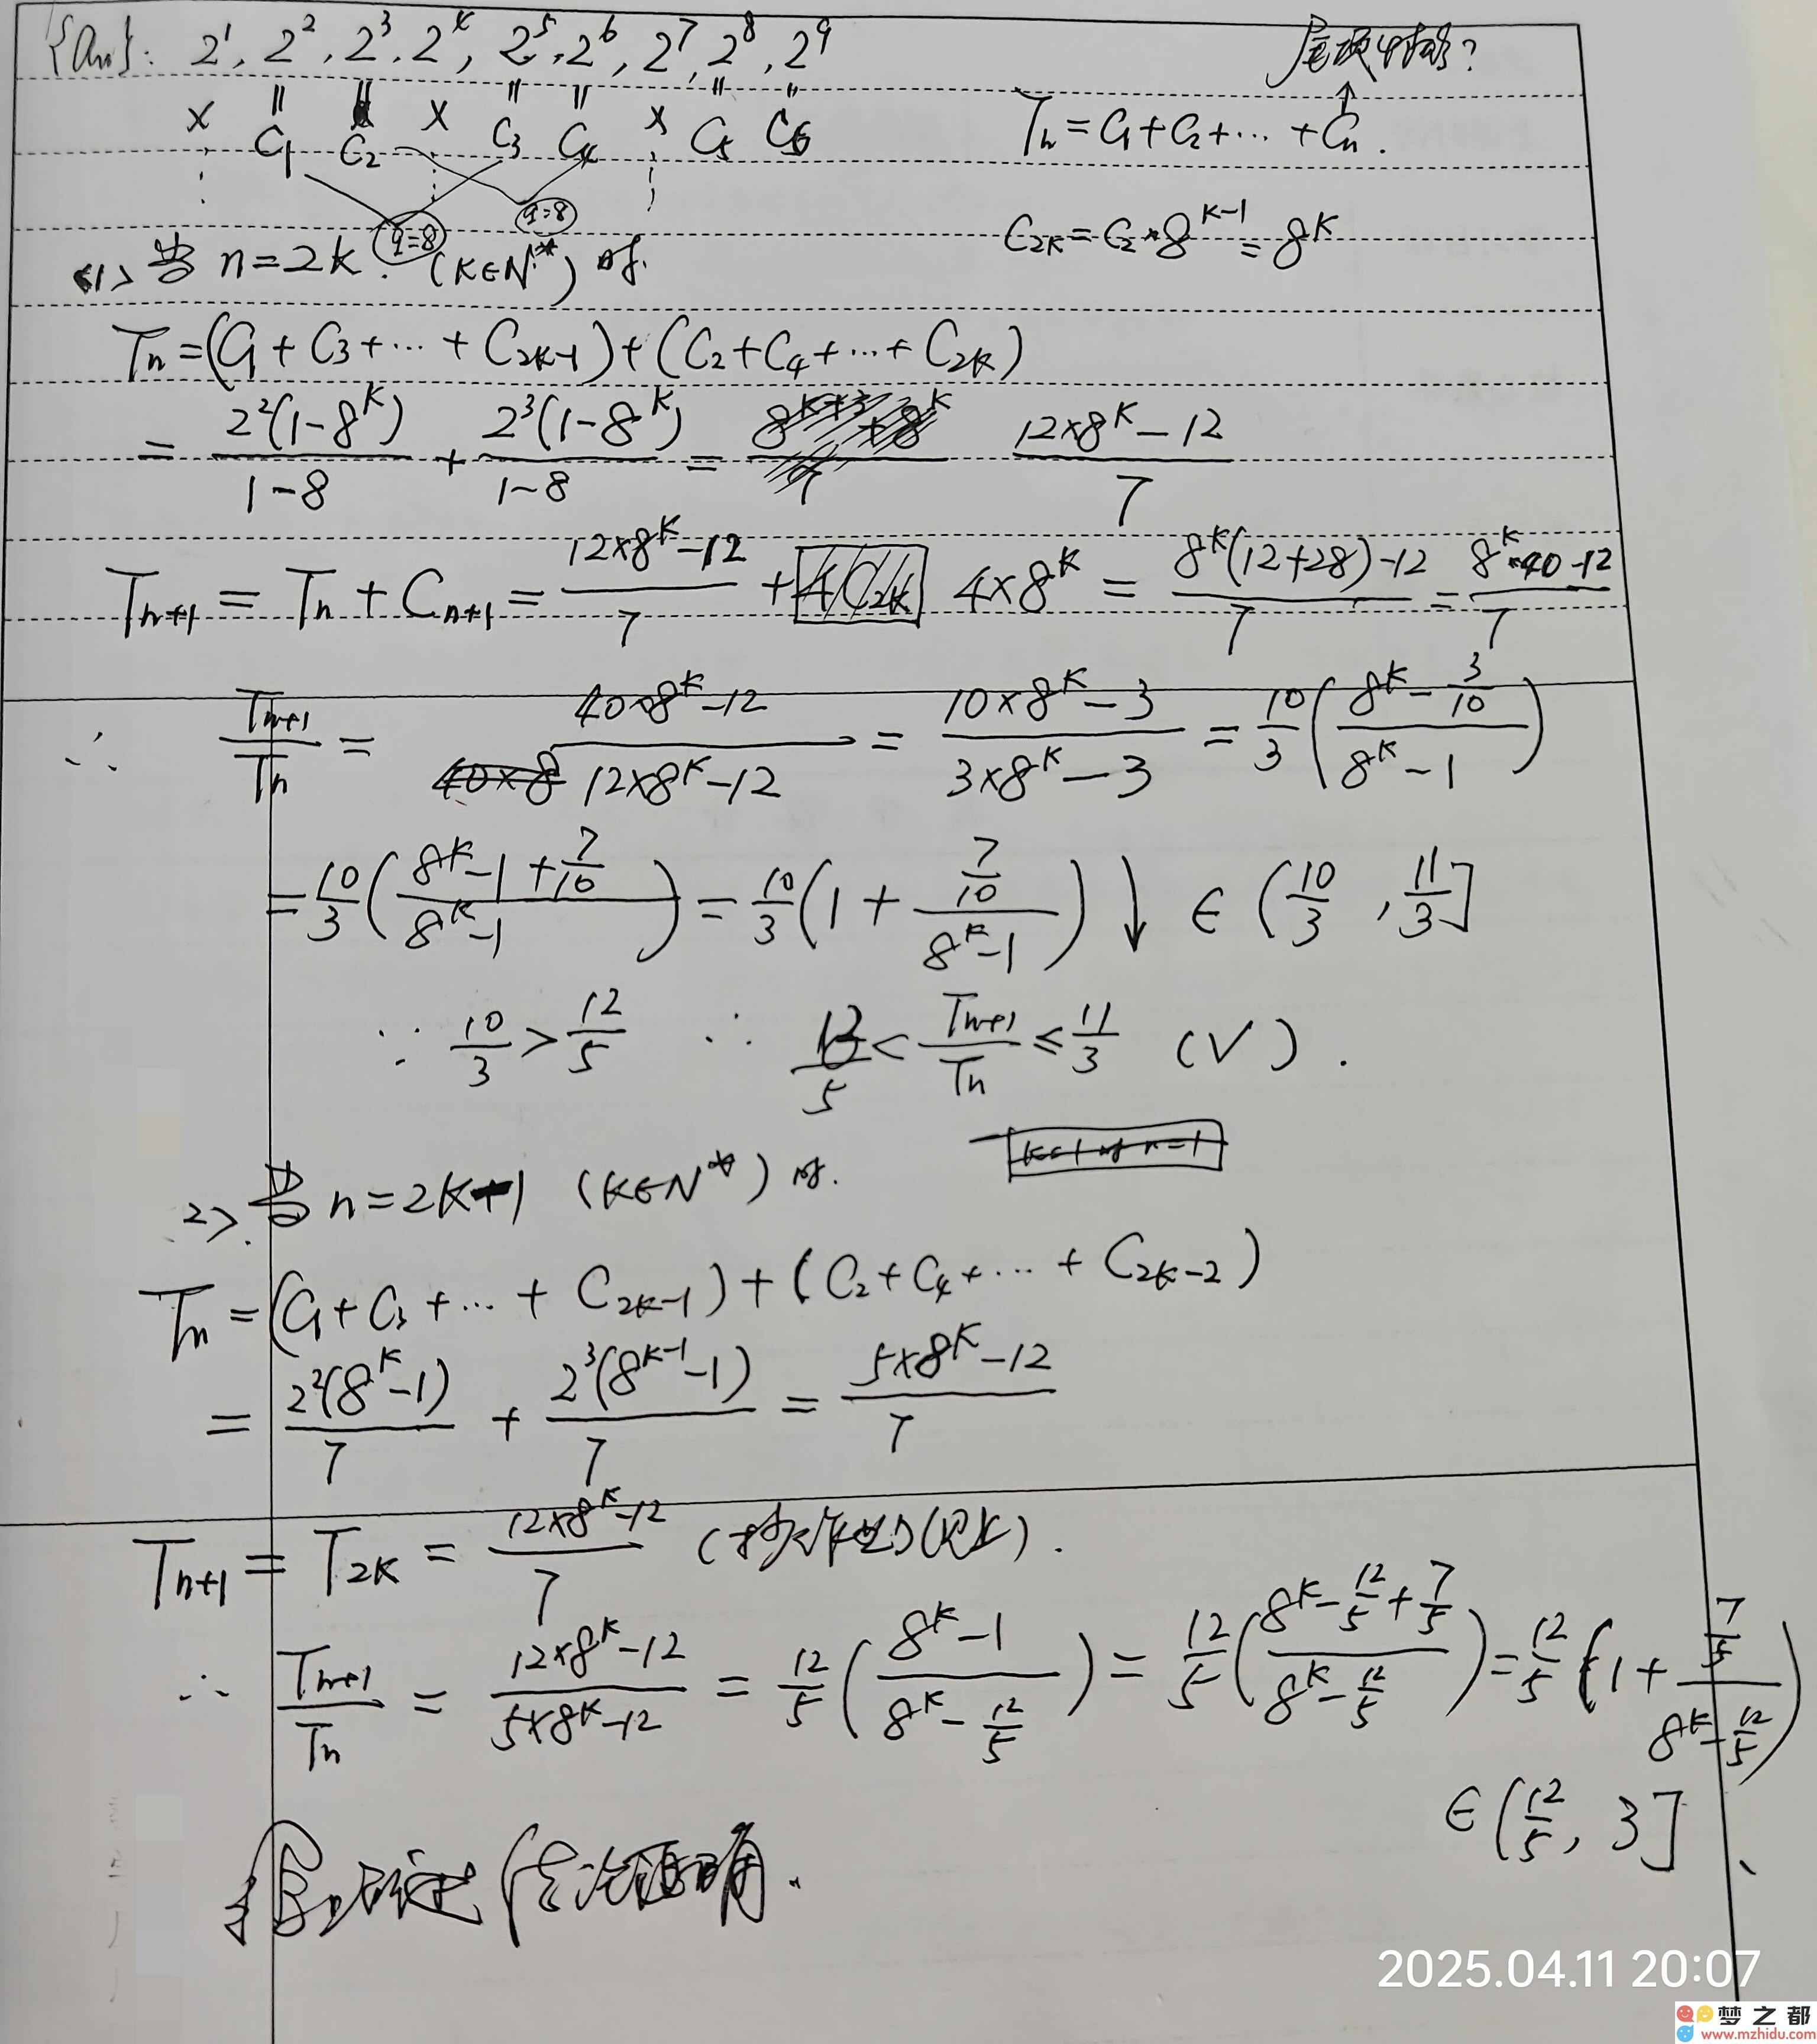 {an}: 2¹, 2², 2³, 2⁴, 2⁵, 2⁶, 2⁷, 2⁸, 2⁹
尾项
× = = × = = × = =
C₁ C₂ C₃ C₄ C₅ C₆
Tn = C₁ + C₂ + ⋯ + Cn.
q=8 q=8
C₂ₖ = C₂·8^(k-1) = 8^k
<1> 当 n=2k. (k∈N*) 时.
Tn = (C₁ + C₃ + ⋯ + C₂ₖ₋₁) + (C₂ + C₄ + ⋯ + C₂ₖ)
= 2²(1-8^k)/(1-8) + 2³(1-8^k)/(1-8) = (12×8^k - 12)/7
Tn+1 = Tn + Cn+1 = (12×8^k - 12)/7 + 4×8^k = (8^k(12+28) - 12)/7 = (8^k·40 - 12)/7
∴ Tn+1/Tn = (40·8^k - 12)/(12×8^k - 12) = (10×8^k - 3)/(3×8^k - 3) = 10/3((8^k - 3/10)/(8^k - 1))
= 10/3((8^k - 1 + 7/10)/(8^k - 1)) = 10/3(1 + (7/10)/(8^k - 1)) ↓ ∈ (10/3, 11/3]
∵ 10/3 > 12/5 ∴ 12/5 < Tn+1/Tn ≤ 11/3 (√).
2>. 当 n=2k-1 (k∈N*) 时.
Tn = (C₁ + C₃ + ⋯ + C₂ₖ₋₁) + (C₂ + C₄ + ⋯ + C₂ₖ₋₂)
= 2²(8^k - 1)/7 + 2³(8^(k-1) - 1)/7 = (5×8^k - 12)/7
Tn+1 = T₂ₖ = (12×8^k - 12)/7
∴ Tn+1/Tn = (12×8^k - 12)/(5×8^k - 12) = 12/5((8^k - 1)/(8^k - 12/5)) = 12/5((8^k - 12/5 + 7/5)/(8^k - 12/5)) = 12/5(1 + (7/5)/(8^k - 12/5))
∈ (12/5, 3]
2025.04.11 20:07
梦之都
www.mzhidu.com